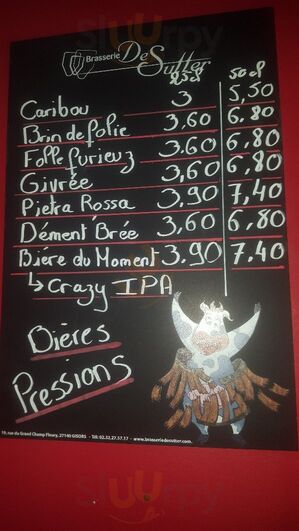 Brasserie De Sutter
25cl 50cl
Caribou 3 5,50
Brin de folie 3,60 6,80
Folle furieuz 3,60 6,80
Givrée 3,60 6,80
Pietra Rossa 3,90 7,40
Dément Brée 3,60 6,80
Bière du Moment 3.90 7.40
↳ Crazy IPA
Bières
Pressions
19, rue du Grand Champ Fleury, 27140 GISORS - Tél: 02.32.27.57.17 - www.brasseriedesutter.com